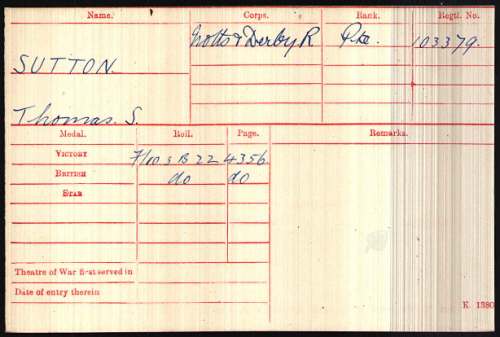 Name. Corps. Rank. Regtl. No.
Notts & Derby R. Pte. 103379.
SUTTON
Thomas. S.
Medal. Roll. Page. Remarks.
VICTORY 4356.
BRITISH do do
STAR
Theatre of War first served in
Date of entry therein
K. 1380